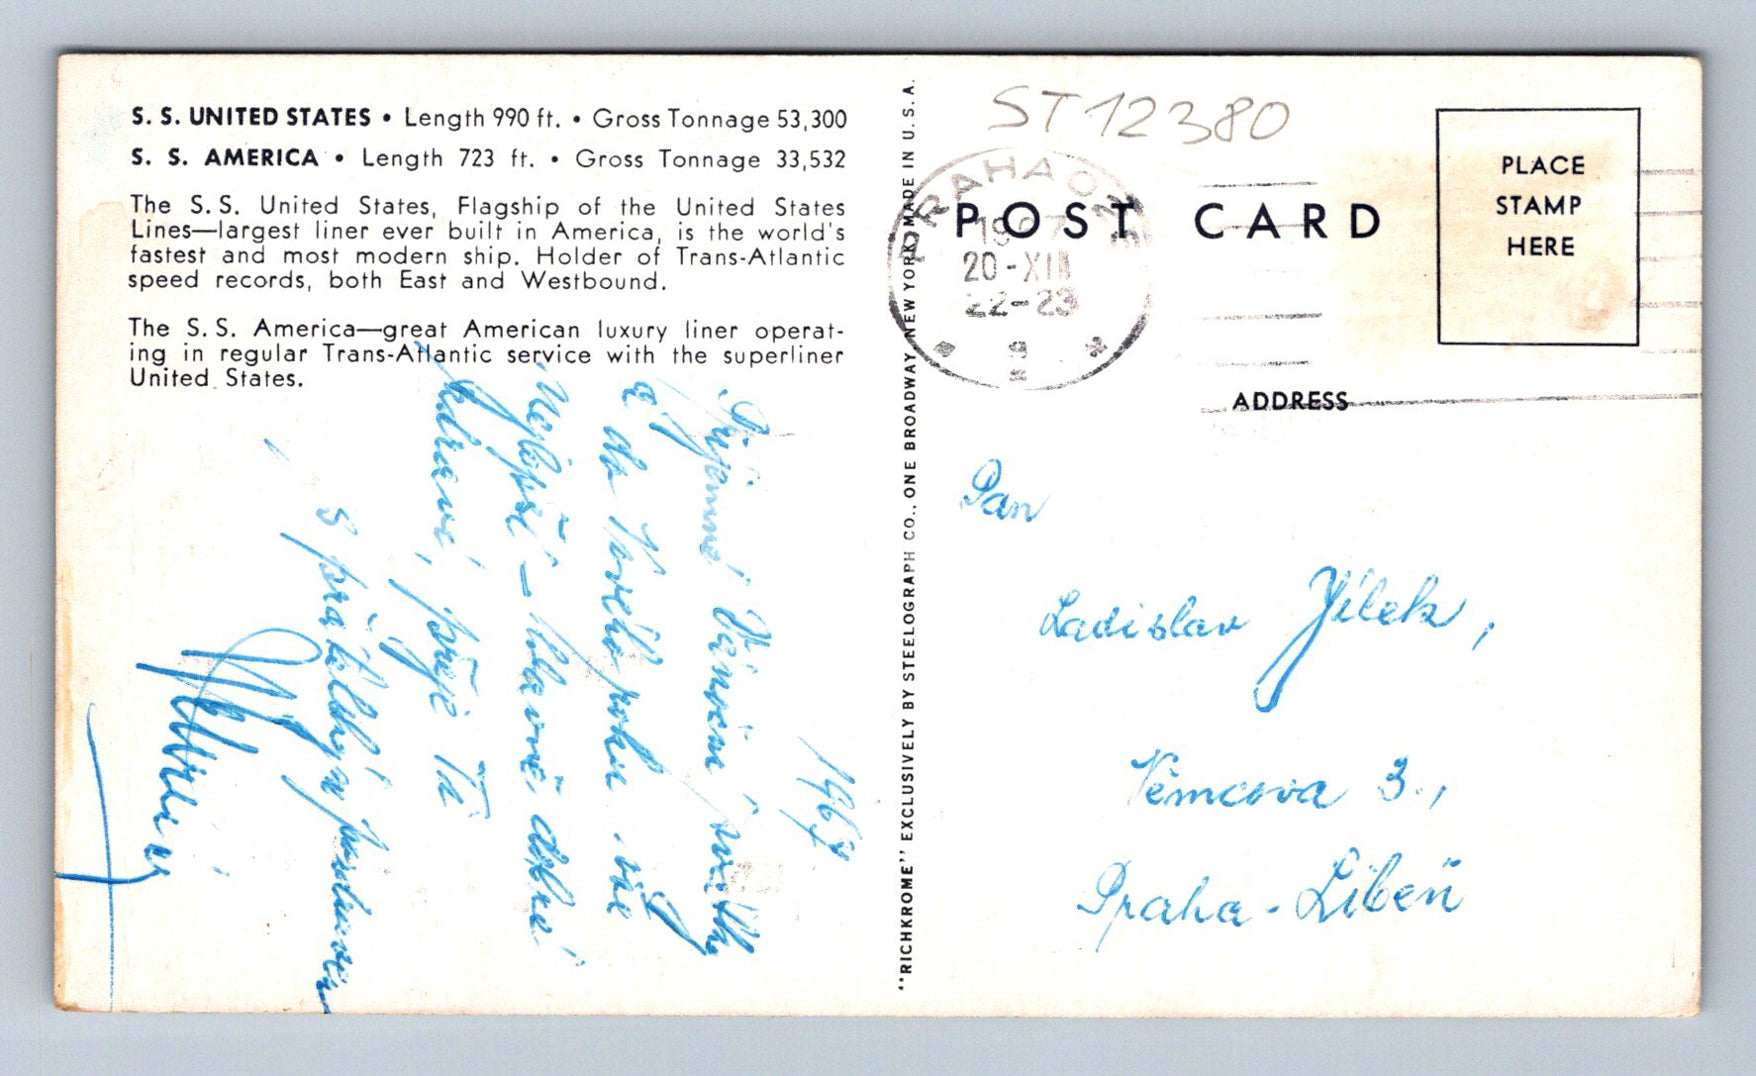 S. S. UNITED STATES • Length 990 ft. • Gross Tonnage 53,300
S. S. AMERICA • Length 723 ft. • Gross Tonnage 33,532
The S. S. United States, Flagship of the United States
Lines—largest liner ever built in America, is the world's
fastest and most modern ship. Holder of Trans-Atlantic
speed records, both East and Westbound.
The S. S. America—great American luxury liner operat-
ing in regular Trans-Atlantic service with the superliner
United States.
1967
Příjemné Vánoční svátky
a do Nového roku vše
Nejlepší – hlavně dobré
zdraví, přeje Ti
s přátelským pozdravem
"RICHKROME" EXCLUSIVELY BY STEELOGRAPH CO., ONE BROADWAY NEW YORK MADE IN U. S. A.
ST 12380
PRAHA
20-XII
22-23
POST CARD
PLACE
STAMP
HERE
ADDRESS
Pan
Ladislav Jílek,
Němcova 3.,
Praha - Libeň